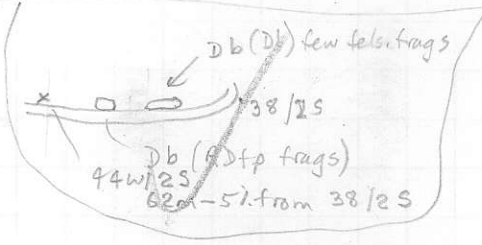 Db (Db) few fels. frags
x
38/2S
Db (ADfp frags)
44W/2S
62m - 5% from 38/2S